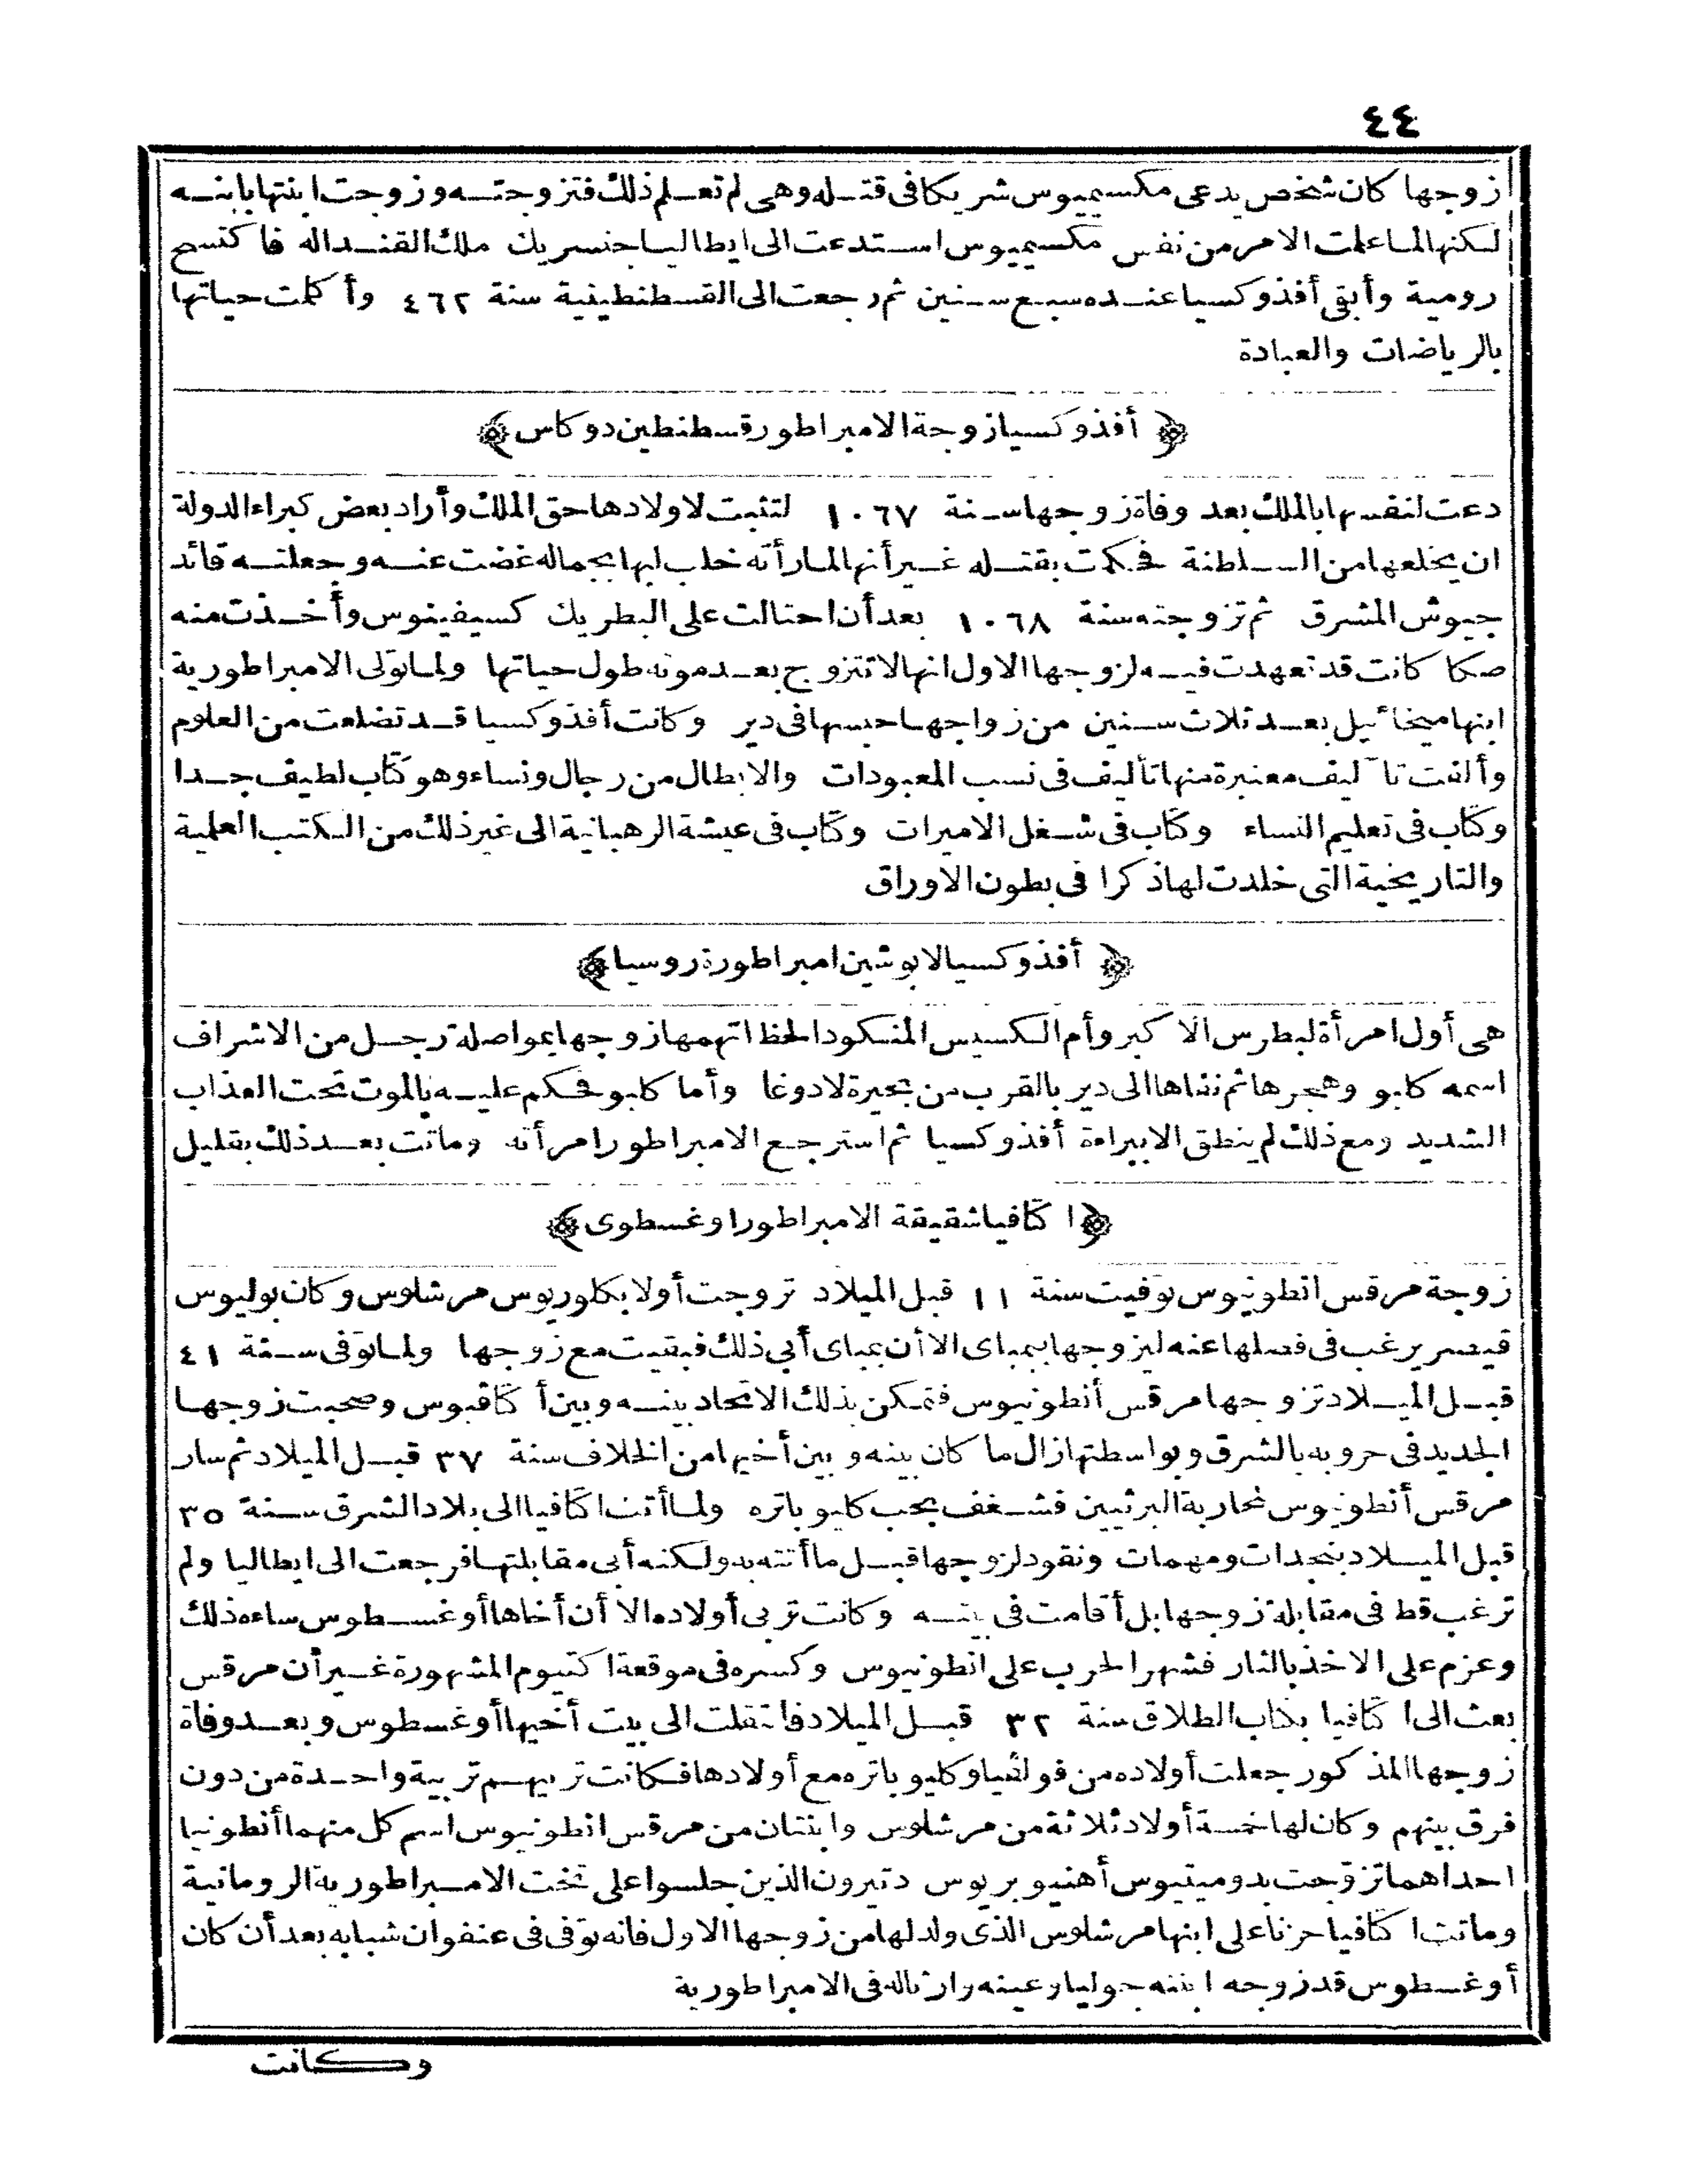 ٤٤
زوجها كان شخص يدعى مكسيميوس شريكا فى قتله وهى لم تعلم ذلك فتزوجته وزوجت ابنتها بابنه
لكنها لما علمت الامر من نفس مكسيميوس استدعت الى ايطاليا جنسريك ملك القنداله فاكتسح
رومية وأبقى أفذوكسيا عنده سبع سنين ثم رجعت الى القسطنطينية سنة ٤٦٢ وأكملت حياتها
بالرياضات والعبادة
﴿ أفذوكسيا زوجة الامبراطور قسطنطين دوكاس ﴾
دعت لنفسها بالملك بعد وفاة زوجها سنة ١٠٦٧ لتثبت لاولادها حق الملك وأراد بعض كبراء الدولة
ان يخلعها من السلطنة فحكمت بقتله غير أنها لما رأته خلب لبها بجماله غضت عنه وجعلته قائد
جيوش المشرق ثم تزوجته سنة ١٠٦٨ بعد أن احتالت على البطريك كسيفينوس وأخذت منه
صكا كانت قد تعهدت فيه لزوجها الاول انها لا تتزوج بعد موته طول حياتها ولما تولى الامبراطورية
ابنها ميخائيل بعد ثلاث سنين من زواجها حبسها فى دير وكانت أفذوكسيا قد تضلعت من العلوم
وألفت تآليف معتبرة منها تأليف فى نسب المعبودات والابطال من رجال ونساء وهو كتاب لطيف جدا
وكتاب فى تعليم النساء وكتاب فى شغل الاميرات وكتاب فى عيشة الرهبانية الى غير ذلك من الكتب العلمية
والتاريخية التى خلدت لها ذكرا فى بطون الاوراق
﴿ أفذوكسيا لابوشين امبراطورة روسيا ﴾
هى أول امرأة لبطرس الاكبر وأم الكسيس المنكود الحظ اتهمها زوجها بمواصلة رجل من الاشراف
اسمه كابو وهجرها ثم نفاها الى دير بالقرب من بحيرة لادوغا وأما كابو فحكم عليه بالموت تحت العذاب
الشديد ومع ذلك لم ينطق الا ببراءة أفذوكسيا ثم استرجع الامبراطور امرأته وماتت بعد ذلك بقليل
﴿ اكتافيا شقيقة الامبراطور اوغسطوى ﴾
زوجة مرقس انطونيوس توفيت سنة ١١ قبل الميلاد تزوجت أولا بكلوريوس مرشلوس وكان بوليوس
قيصر يرغب فى فصلها عنه ليزوجها ببمباى الا أن بمباى أبى ذلك فبقيت مع زوجها ولما توفى سنة ٤١
قبل الميلاد تزوجها مرقس أنطونيوس فتمكن بذلك الاتحاد بينه وبين أكتاقيوس وصحبت زوجها
الجديد فى حروبه بالشرق وبواسطتها زال ما كان بينه وبين أخيها من الخلاف سنة ٣٧ قبل الميلاد ثم سار
مرقس أنطونيوس لمحاربة البرثيين فشغف بحب كليوباتره ولما أتت اكتافيا الى بلاد الشرق سنة ٣٥
قبل الميلاد بنجدات ومهمات ونقود لزوجها قبل ما أتته به ولكنه أبى مقابلتها فرجعت الى ايطاليا ولم
ترغب قط فى مقابلة زوجها بل أقامت فى بيته وكانت تربى أولاده الا أن أخاها أوغسطوس ساءه ذلك
وعزم على الاخذ بالثار فشهر الحرب على انطونيوس وكسره فى موقعة اكتيوم المشهورة غير أن مرقس
بعث الى اكتافيا بكتاب الطلاق سنة ٣٢ قبل الميلاد فانتقلت الى بيت أخيها أوغسطوس وبعد وفاة
زوجها المذكور جعلت أولاده من فولفيا وكليوباتره مع أولادها فكانت تربيهم تربية واحدة من دون
فرق بينهم وكان لها خمسة أولاد ثلاثة من مرشلوس وابنتان من مرقس انطونيوس اسم كل منهما أنطونيا
احداهما تزوّجت بدوميتيوس أهنيو بربوس دنيرون الذين جلسوا على تخت الامبراطورية الرومانية
وماتت اكتافيا حزنا على ابنها مرشلوس الذى ولد لها من زوجها الاول فانه توفى فى عنفوان شبابه بعد أن كان
أوغسطوس قد زوجه ابنته جوليا وعينه وارثا له فى الامبراطورية
وكانت